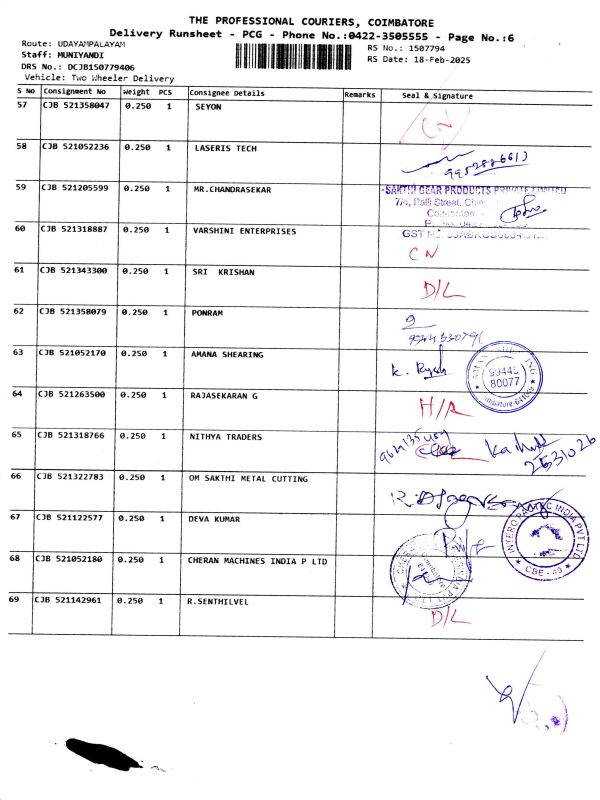 THE PROFESSIONAL COURIERS, COIMBATORE
Delivery Runsheet - PCG - Phone No.:0422-3505555 - Page No.:6
Route: UDAYAMPALAYAM RS No.: 1507794
Staff: MUNIYANDI RS Date: 18-Feb-2025
DRS No.: DCJB150779406
Vehicle: Two Wheeler Delivery
S No Consignment No Weight PCS Consignee Details Remarks Seal & Signature
57 CJB 521358047 0.250 1 SEYON CN
58 CJB 521052236 0.250 1 LASERIS TECH
59 CJB 521205599 0.250 1 MR.CHANDRASEKAR SAKTHI GEAR PRODUCTS PRIVATE LIMITED
7/4, Palli Street,
Coimbatore
60 CJB 521318887 0.250 1 VARSHINI ENTERPRISES CN
61 CJB 521343300 0.250 1 SRI KRISHAN D/L
62 CJB 521358079 0.250 1 PONRAM
63 CJB 521052170 0.250 1 AMANA SHEARING 99445 80077
64 CJB 521263500 0.250 1 RAJASEKARAN G H/A
65 CJB 521318766 0.250 1 NITHYA TRADERS
66 CJB 521322783 0.250 1 OM SAKTHI METAL CUTTING
67 CJB 521122577 0.250 1 DEVA KUMAR INDIA PVT LTD CBE - 49
68 CJB 521052180 0.250 1 CHERAN MACHINES INDIA P LTD
69 CJB 521142961 0.250 1 R.SENTHILVEL D/L